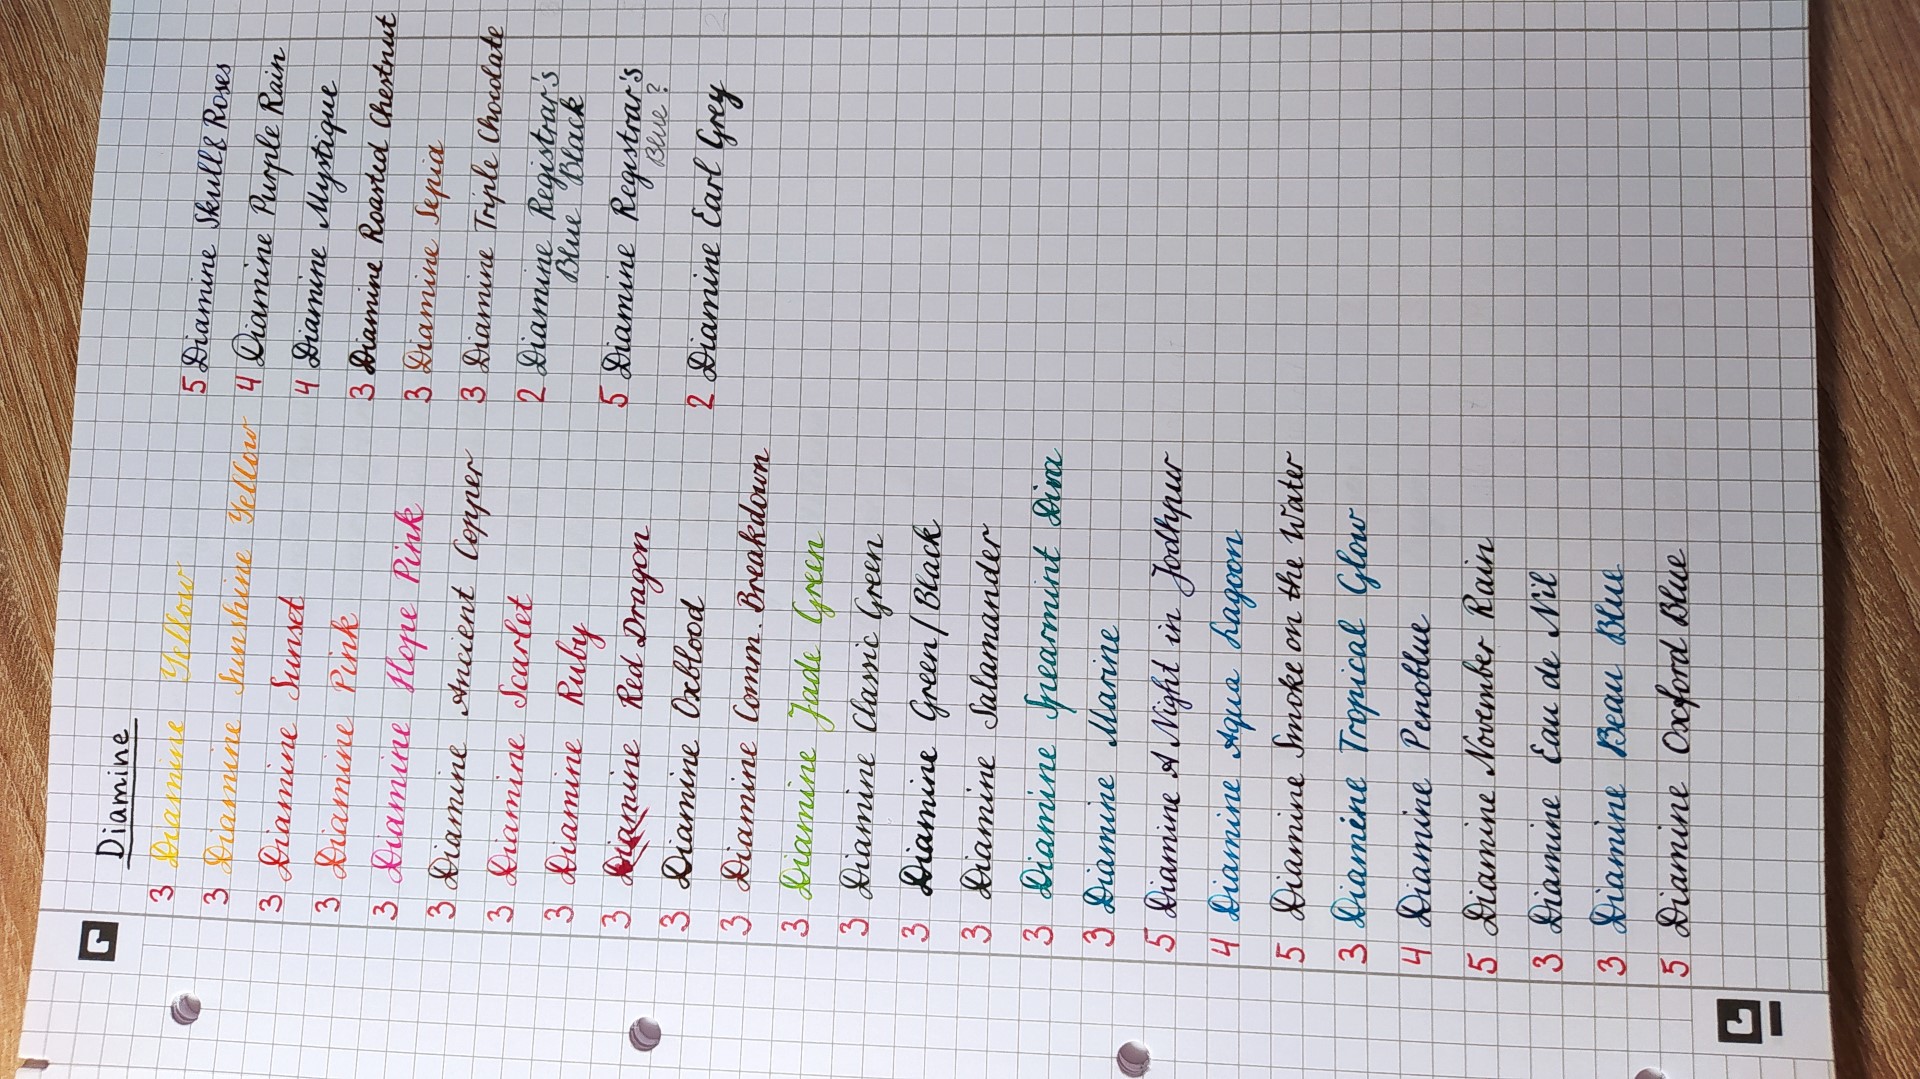 Diamine
3 Diamine Yellow
3 Diamine Sunshine Yellow
3 Diamine Sunset
3 Diamine Pink
3 Diamine Hope Pink
3 Diamine Ancient Copper
3 Diamine Scarlet
3 Diamine Ruby
3 Diamine Red Dragon
3 Diamine Oxblood
3 Diamine Comm. Breakdown
3 Diamine Jade Green
3 Diamine Classic Green
3 Diamine Green/Black
3 Diamine Salamander
3 Diamine Spearmint Diva
3 Diamine Marine
5 Diamine A Night in Jodhpur
4 Diamine Aqua Lagoon
5 Diamine Smoke on the Water
3 Diamine Tropical Glow
4 Diamine Penoblue
5 Diamine November Rain
3 Diamine Eau de Nil
3 Diamine Beau Blue
5 Diamine Oxford Blue
5 Diamine Skull & Roses
4 Diamine Purple Rain
4 Diamine Mystique
3 Diamine Roasted Chestnut
3 Diamine Sepia
3 Diamine Triple Chocolate
2 Diamine Registrar's
Blue Black
5 Diamine Registrar's
Blue?
2 Diamine Earl Grey